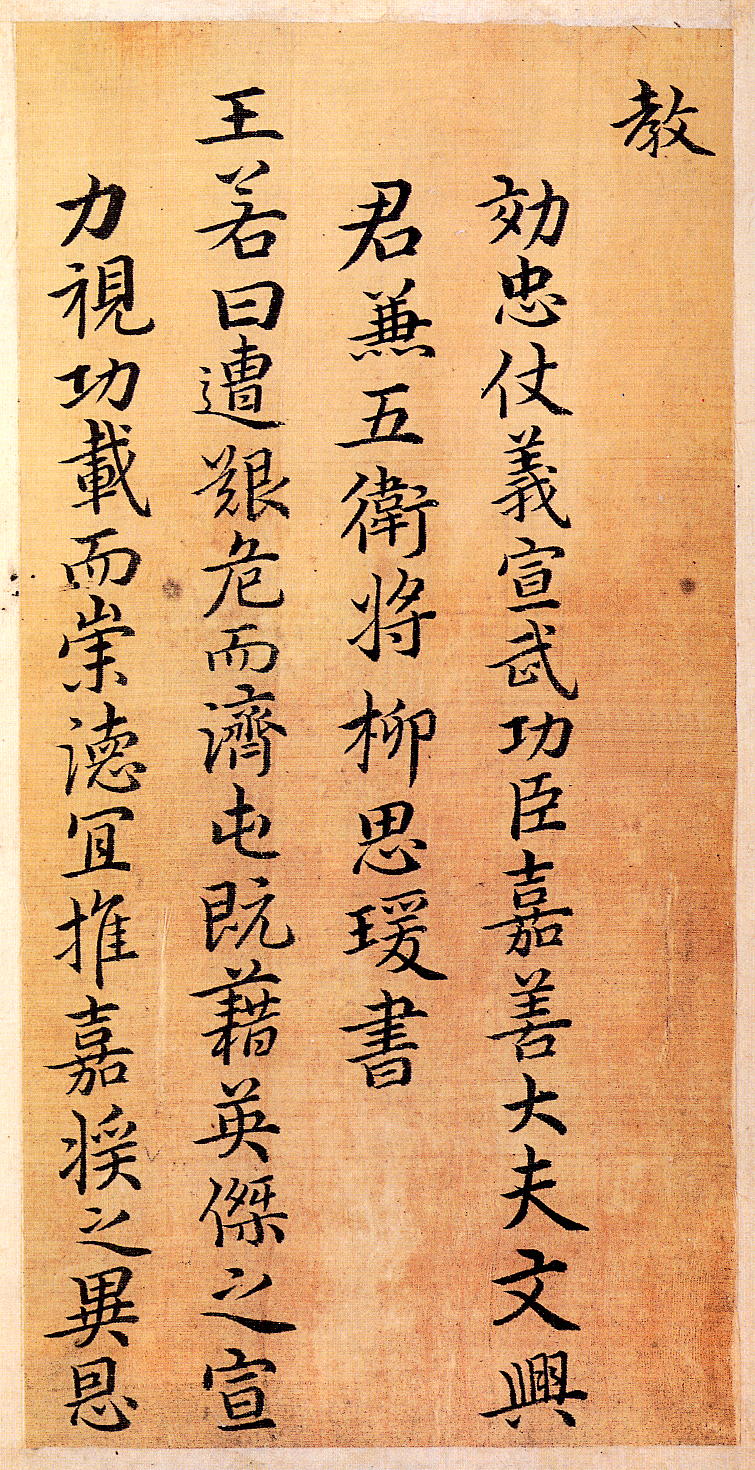 教
効忠仗義宣武功臣嘉善大夫文興
君兼五衛將柳思瑗書
王若曰遭艱危而濟屯既藉英傑之宣
力視功載而崇德宜推嘉奬之異恩